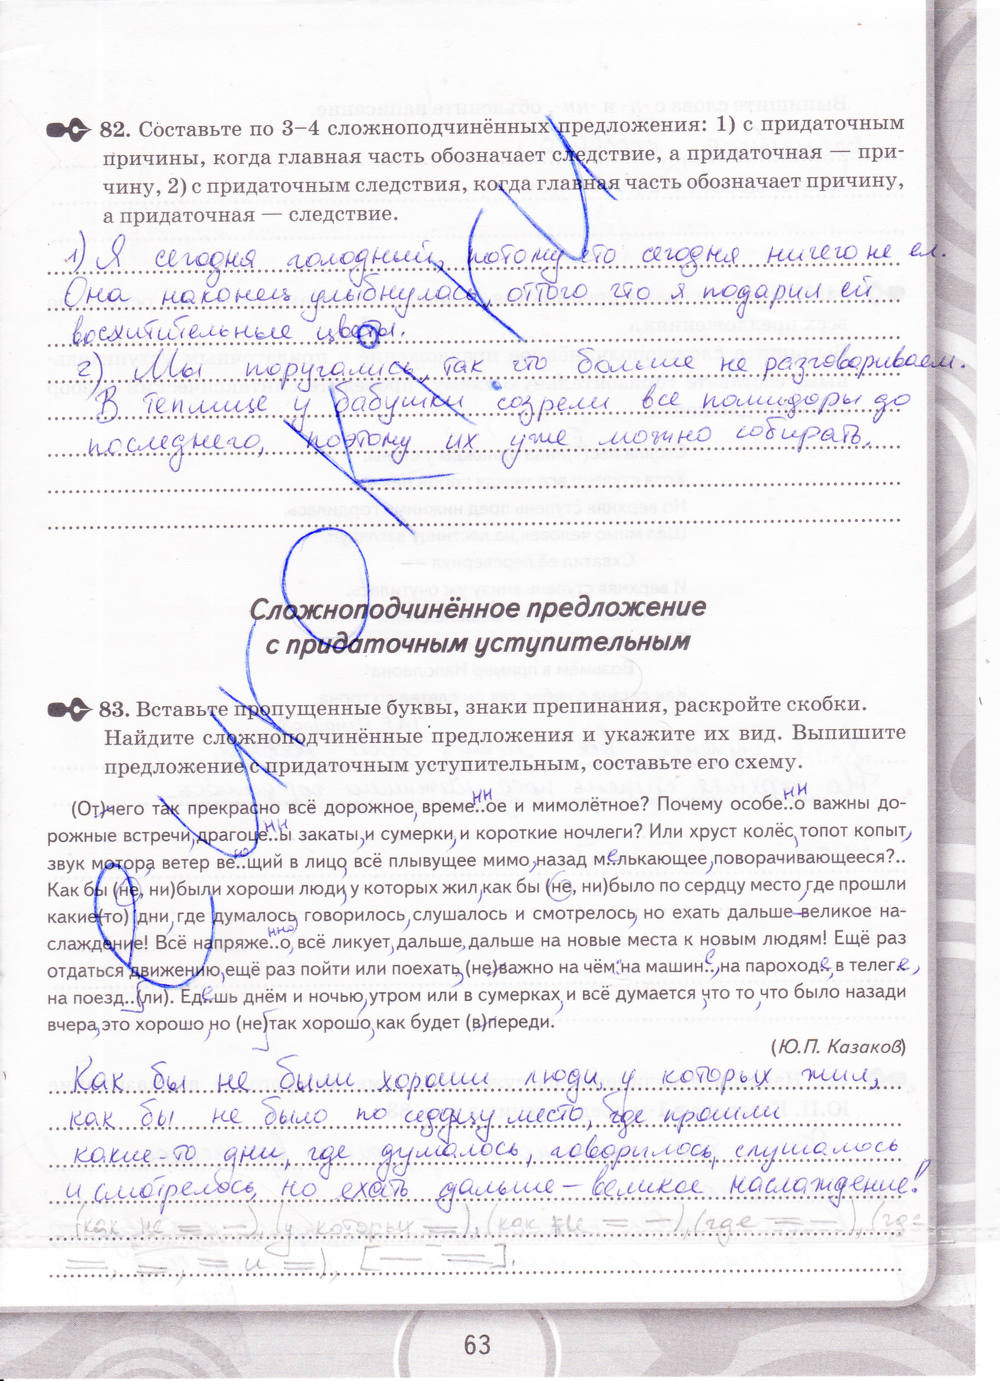 82. Составьте по 3–4 сложноподчинённых предложения: 1) с придаточным
причины, когда главная часть обозначает следствие, а придаточная — при-
чину, 2) с придаточным следствия, когда главная часть обозначает причину,
а придаточная — следствие.
1) Я сегодня голодный, потому что сегодня ничего не ел.
Она наконец улыбнулась, оттого что я подарил ей
восхитительные цветы.
2) Мы поругались, так что больше не разговариваем.
В теплице у бабушки созрели все помидоры до
последнего, поэтому их уже можно собирать.
Сложноподчинённое предложение
с придаточным уступительным
83. Вставьте пропущенные буквы, знаки препинания, раскройте скобки.
Найдите сложноподчинённые предложения и укажите их вид. Выпишите
предложение с придаточным уступительным, составьте его схему.
(От)чего так прекрасно всё дорожное, време..ое и мимолётное? Почему особе..о важны до-
рожные встречи, драгоце..ы закаты, и сумерки, и короткие ночлеги? Или хруст колёс, топот копыт,
звук мотора, ветер ве..щий в лицо, всё плывущее мимо, назад мелькающее, поворачивающееся?..
Как бы (не, ни)были хороши люди, у которых жил, как бы (не, ни)было по сердцу место, где прошли
какие(то) дни, где думалось, говорилось, слушалось и смотрелось, но ехать дальше – великое на-
слаждение! Всё напряже..о, всё ликует, дальше, дальше на новые места к новым людям! Ещё раз
отдаться движению, ещё раз пойти или поехать, (не)важно на чём: на машин.., на пароходе, в телеге,
на поезд..(ли). Едешь днём и ночью, утром или в сумерках, и всё думается, что то, что было назади
вчера, это хорошо, но (не)так хорошо, как будет (в)переди.
(Ю.П. Казаков)
Как бы не были хороши люди, у которых жил,
как бы не было по сердцу место, где прошли
какие-то дни, где думалось, говорилось, слушалось
и смотрелось, но ехать дальше – великое наслаждение!
(как не = –), (у которых =), (как не = –), (где = –), (где
=, =, = и =), [– =].
63